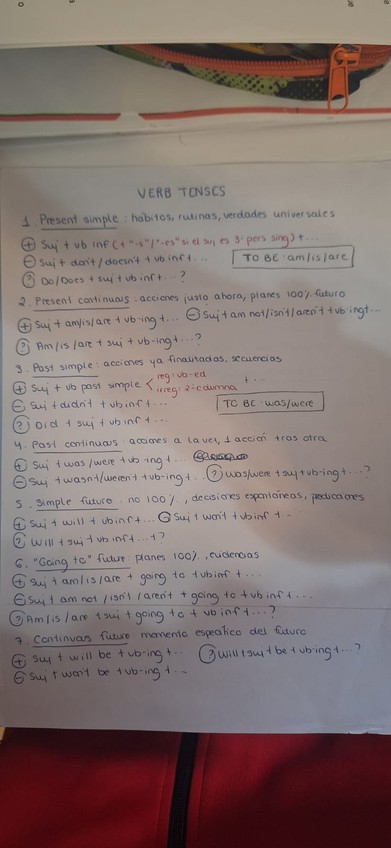 VERB TENSES
1. Present simple: hábitos, rutinas, verdades universales
⊕ Suj + vb inf (+ "-s"/"-es" si el suj es 3ª pers sing) + ...
⊖ Suj + don't/doesn't + vb inf + ... TO BE: am/is/are
? Do/Does + suj + vb inf + ...?
2. Present continuous: acciones justo ahora, planes 100% futuro
⊕ Suj + am/is/are + vb-ing + ... ⊖ Suj + am not/isn't/aren't + vb-ing + ...
? Am/is/are + suj + vb-ing + ...?
3. Past simple: acciones ya finalizadas, secuencias
⊕ Suj + vb past simple < reg: vb-ed + ...
irreg: 2ª columna
⊖ Suj + didn't + vb inf + ... TO BE: was/were
? Did + suj + vb inf + ...?
4. Past continuous: acciones a la vez, 1 acción tras otra
⊕ Suj + was/were + vb-ing + ...
⊖ Suj + wasn't/weren't + vb-ing + ... ? was/were + suj + vb-ing + ...?
5. Simple future: no 100%, decisiones espontáneas, predicciones
⊕ Suj + will + vb inf + ... ⊖ Suj + won't + vb inf + ...
? Will + suj + vb inf + ...?
6. "Going to" future: planes 100%, evidencias
⊕ Suj + am/is/are + going to + vb inf + ...
⊖ Suj + am not/isn't/aren't + going to + vb inf + ...
? Am/is/are + suj + going to + vb inf + ...?
7. Continuous future momento específico del futuro
⊕ Suj + will be + vb-ing + ... ? Will + suj + be + vb-ing + ...?
⊖ Suj + won't be + vb-ing + ...